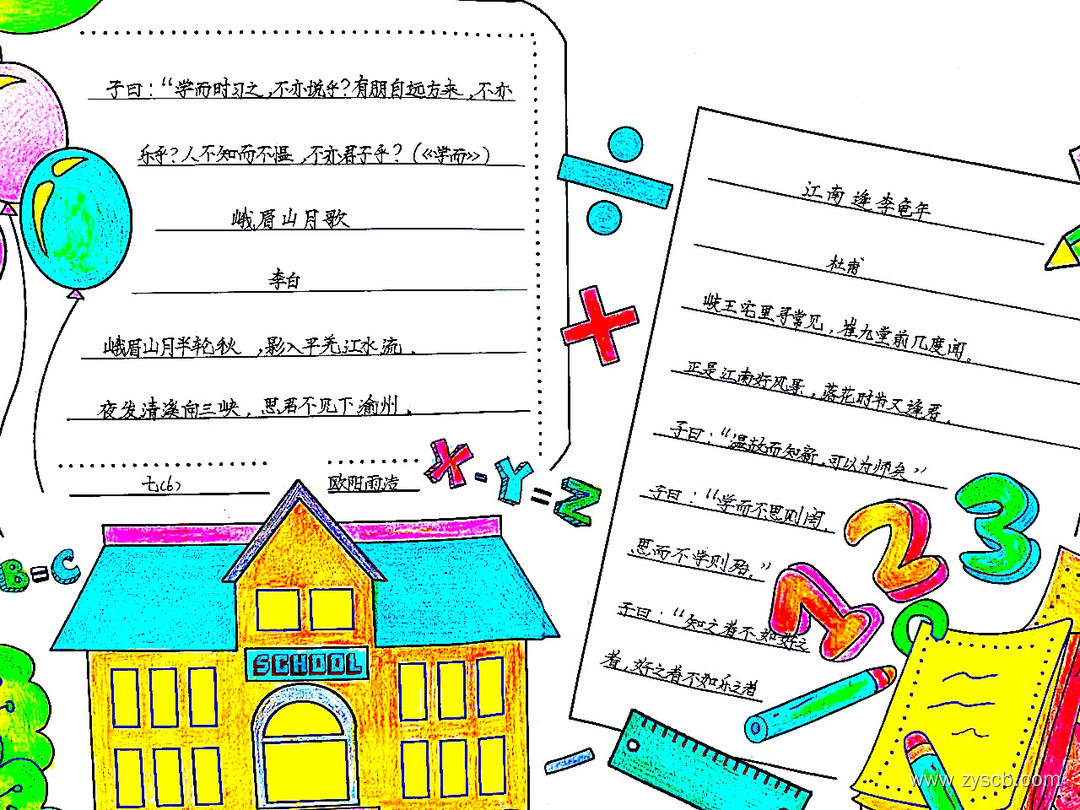 子曰：“学而时习之，不亦说乎？有朋自远方来，不亦
乐乎？人不知而不愠，不亦君子乎？（《学而》）
峨眉山月歌
李白
峨眉山月半轮秋，影入平羌江水流。
夜发清溪向三峡，思君不见下渝州。
七(6)
欧阳雨洁
X-Y=Z
B=C
SCHOOL
江南逢李龟年
杜甫
岐王宅里寻常见，崔九堂前几度闻。
正是江南好风景，落花时节又逢君。
子曰：“温故而知新，可以为师矣”
子曰：“学而不思则罔，
思而不学则殆。”
子曰：“知之者不如好之
者，好之者不如乐之者
1 2 3
www.zyscb.com